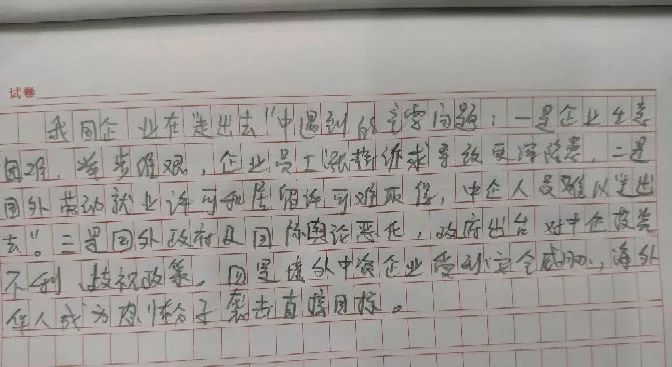 试卷
我国企业在"走出去"中遇到的主要问题:一是企业生意
困难,举步维艰,企业员工涨薪诉求导致更详谈意,二是
国外劳动就业许可和居留许可难取得,中企人员难以"走出
去"。三是国外政府及国际舆论恶化,政府出台对中企投资
不利歧视政策。四是境外中资企业受到安全威胁,海外
华人成为恐怖分子袭击直接目标。